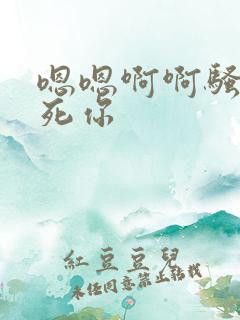 嗯嗯啊啊骚
死你
紅豆豆兒
未经同意禁止转载